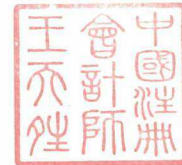 中國注冊
會計師
王天